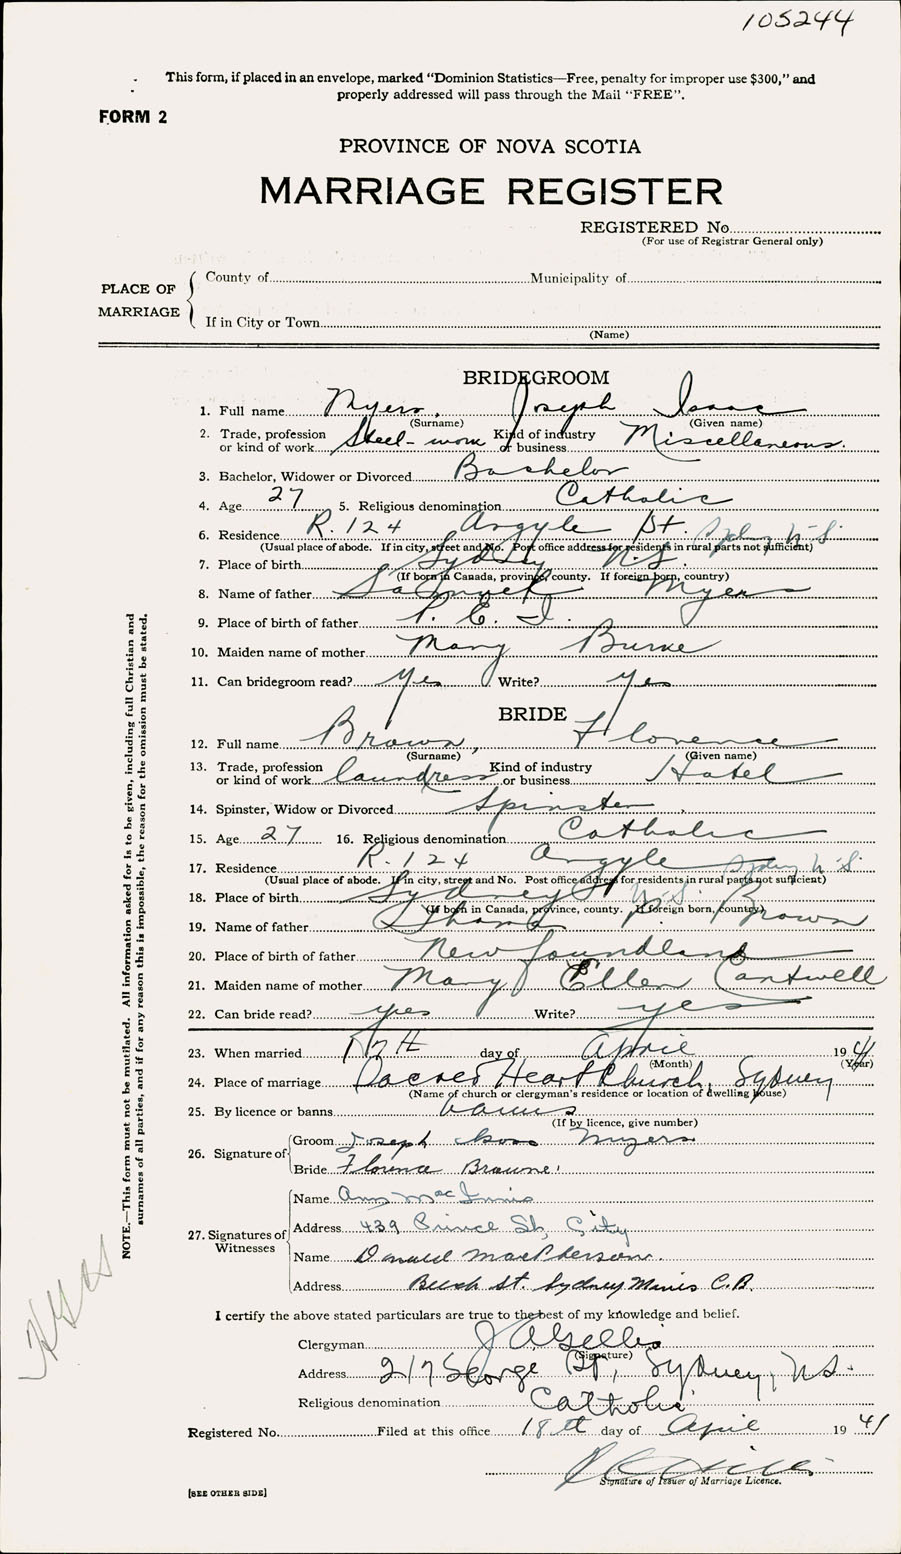 105244
This form, if placed in an envelope, marked "Dominion Statistics—Free, penalty for improper use $300," and
properly addressed will pass through the Mail "FREE".
FORM 2
PROVINCE OF NOVA SCOTIA
MARRIAGE REGISTER
REGISTERED No.
(For use of Registrar General only)
PLACE OF MARRIAGE
County of Municipality of
If in City or Town
(Name)
BRIDEGROOM
1. Full name Myers, Joseph Isaac
(Surname) (Given name)
2. Trade, profession or kind of work Steel-work Kind of industry or business Miscellaneous.
3. Bachelor, Widower or Divorced Bachelor
4. Age 27 5. Religious denomination Catholic
6. Residence R. 124 Argyle St. Sydney N-S.
(Usual place of abode. If in city, street and No. Post office address for residents in rural parts not sufficient)
7. Place of birth Sydney N.S.
(If born in Canada, province, county. If foreign born, country)
8. Name of father Myers
9. Place of birth of father P. E. I.
10. Maiden name of mother Mary Burke
11. Can bridegroom read? Yes Write? yes
BRIDE
12. Full name Brown, Florence
(Surname) (Given name)
13. Trade, profession or kind of work laundress Kind of industry or business Hotel
14. Spinster, Widow or Divorced Spinster
15. Age 27 16. Religious denomination Catholic
17. Residence R. 124 Argyle Sydney N-S.
(Usual place of abode. If in city, street and No. Post office address for residents in rural parts not sufficient)
18. Place of birth Sydney N-S.
(If born in Canada, province, county. If foreign born, country)
19. Name of father Thomas P. Brown
20. Place of birth of father Newfoundland
21. Maiden name of mother Mary Ellen Cantwell
22. Can bride read? yes Write? yes
23. When married 17th day of April 1941
(Month) (Year)
24. Place of marriage Sacred Heart Church, Sydney
(Name of church or clergyman's residence or location of dwelling house)
25. By licence or banns banns
(If by licence, give number)
26. Signature of
Groom Joseph Myers
Bride Florence Browne
27. Signatures of Witnesses
Name Ann MacInnis
Address 439 Prince St, City
Name Donald MacPherson.
Address Beech St. Sydney Mines C.B.
I certify the above stated particulars are true to the best of my knowledge and belief.
Clergyman J A Gillis
(Signature)
Address 217 George St, Sydney, N.S.
Religious denomination Catholic
Registered No. Filed at this office 18th day of April 1941
Signature of Issuer of Marriage Licence.
[SEE OTHER SIDE]
NOTE.—This form must not be mutilated. All information asked for is to be given, including full Christian and
surnames of all parties, and if for any reason this is impossible, the reason for the omission must be stated.